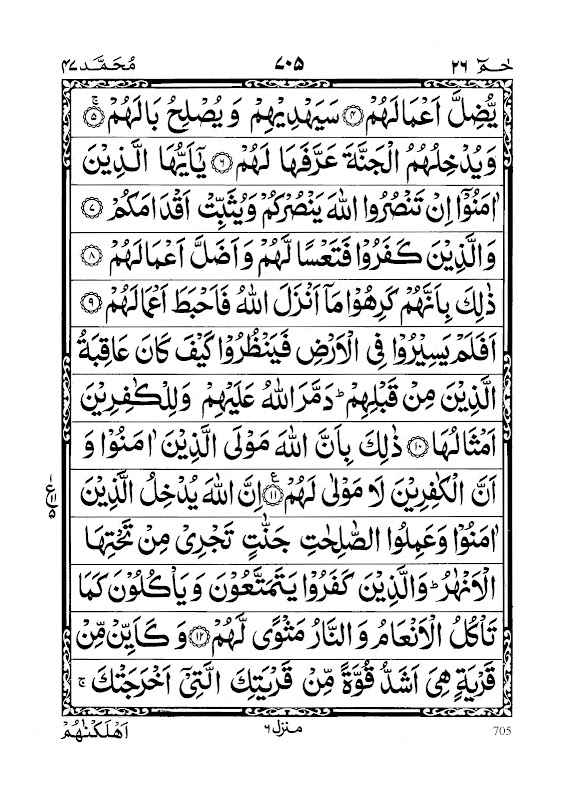 حٰمٓ ٢٦ ٧٠٥ مُحَمَّد ٤٧
يُّضِلَّ اَعْمَالَهُمْ ﴿٤﴾ سَيَهْدِيْهِمْ وَيُصْلِحُ بَالَهُمْ ﴿٥﴾ۚ
وَيُدْخِلُهُمُ الْجَنَّةَ عَرَّفَهَا لَهُمْ ﴿٦﴾ يٰۤاَيُّهَا الَّذِيْنَ
اٰمَنُوْۤا اِنْ تَنْصُرُوا اللّٰهَ يَنْصُرْكُمْ وَيُثَبِّتْ اَقْدَامَكُمْ ﴿٧﴾
وَالَّذِيْنَ كَفَرُوْا فَتَعْسًا لَّهُمْ وَاَضَلَّ اَعْمَالَهُمْ ﴿٨﴾
ذٰلِكَ بِاَنَّهُمْ كَرِهُوْا مَاۤ اَنْزَلَ اللّٰهُ فَاَحْبَطَ اَعْمَالَهُمْ ﴿٩﴾
اَفَلَمْ يَسِيْرُوْا فِى الْاَرْضِ فَيَنْظُرُوْا كَيْفَ كَانَ عَاقِبَةُ
الَّذِيْنَ مِنْ قَبْلِهِمْ ؕ دَمَّرَ اللّٰهُ عَلَيْهِمْ وَلِلْكٰفِرِيْنَ
اَمْثَالُهَا ﴿١٠﴾ ذٰلِكَ بِاَنَّ اللّٰهَ مَوْلَى الَّذِيْنَ اٰمَنُوْا وَ
اَنَّ الْكٰفِرِيْنَ لَا مَوْلٰى لَهُمْ ﴿١١﴾ۧ اِنَّ اللّٰهَ يُدْخِلُ الَّذِيْنَ
ع ١١ ٥
اٰمَنُوْا وَعَمِلُوا الصّٰلِحٰتِ جَنّٰتٍ تَجْرِىْ مِنْ تَحْتِهَا
الْاَنْهٰرُ ؕ وَالَّذِيْنَ كَفَرُوْا يَتَمَتَّعُوْنَ وَيَاْكُلُوْنَ كَمَا
تَاْكُلُ الْاَنْعَامُ وَالنَّارُ مَثْوًى لَّهُمْ ﴿١٢﴾ وَكَاَيِّنْ مِّنْ
قَرْيَةٍ هِىَ اَشَدُّ قُوَّةً مِّنْ قَرْيَتِكَ الَّتِىْۤ اَخْرَجَتْكَ ۚ
705 منزل ٦ اَهْلَكْنٰهُمْ